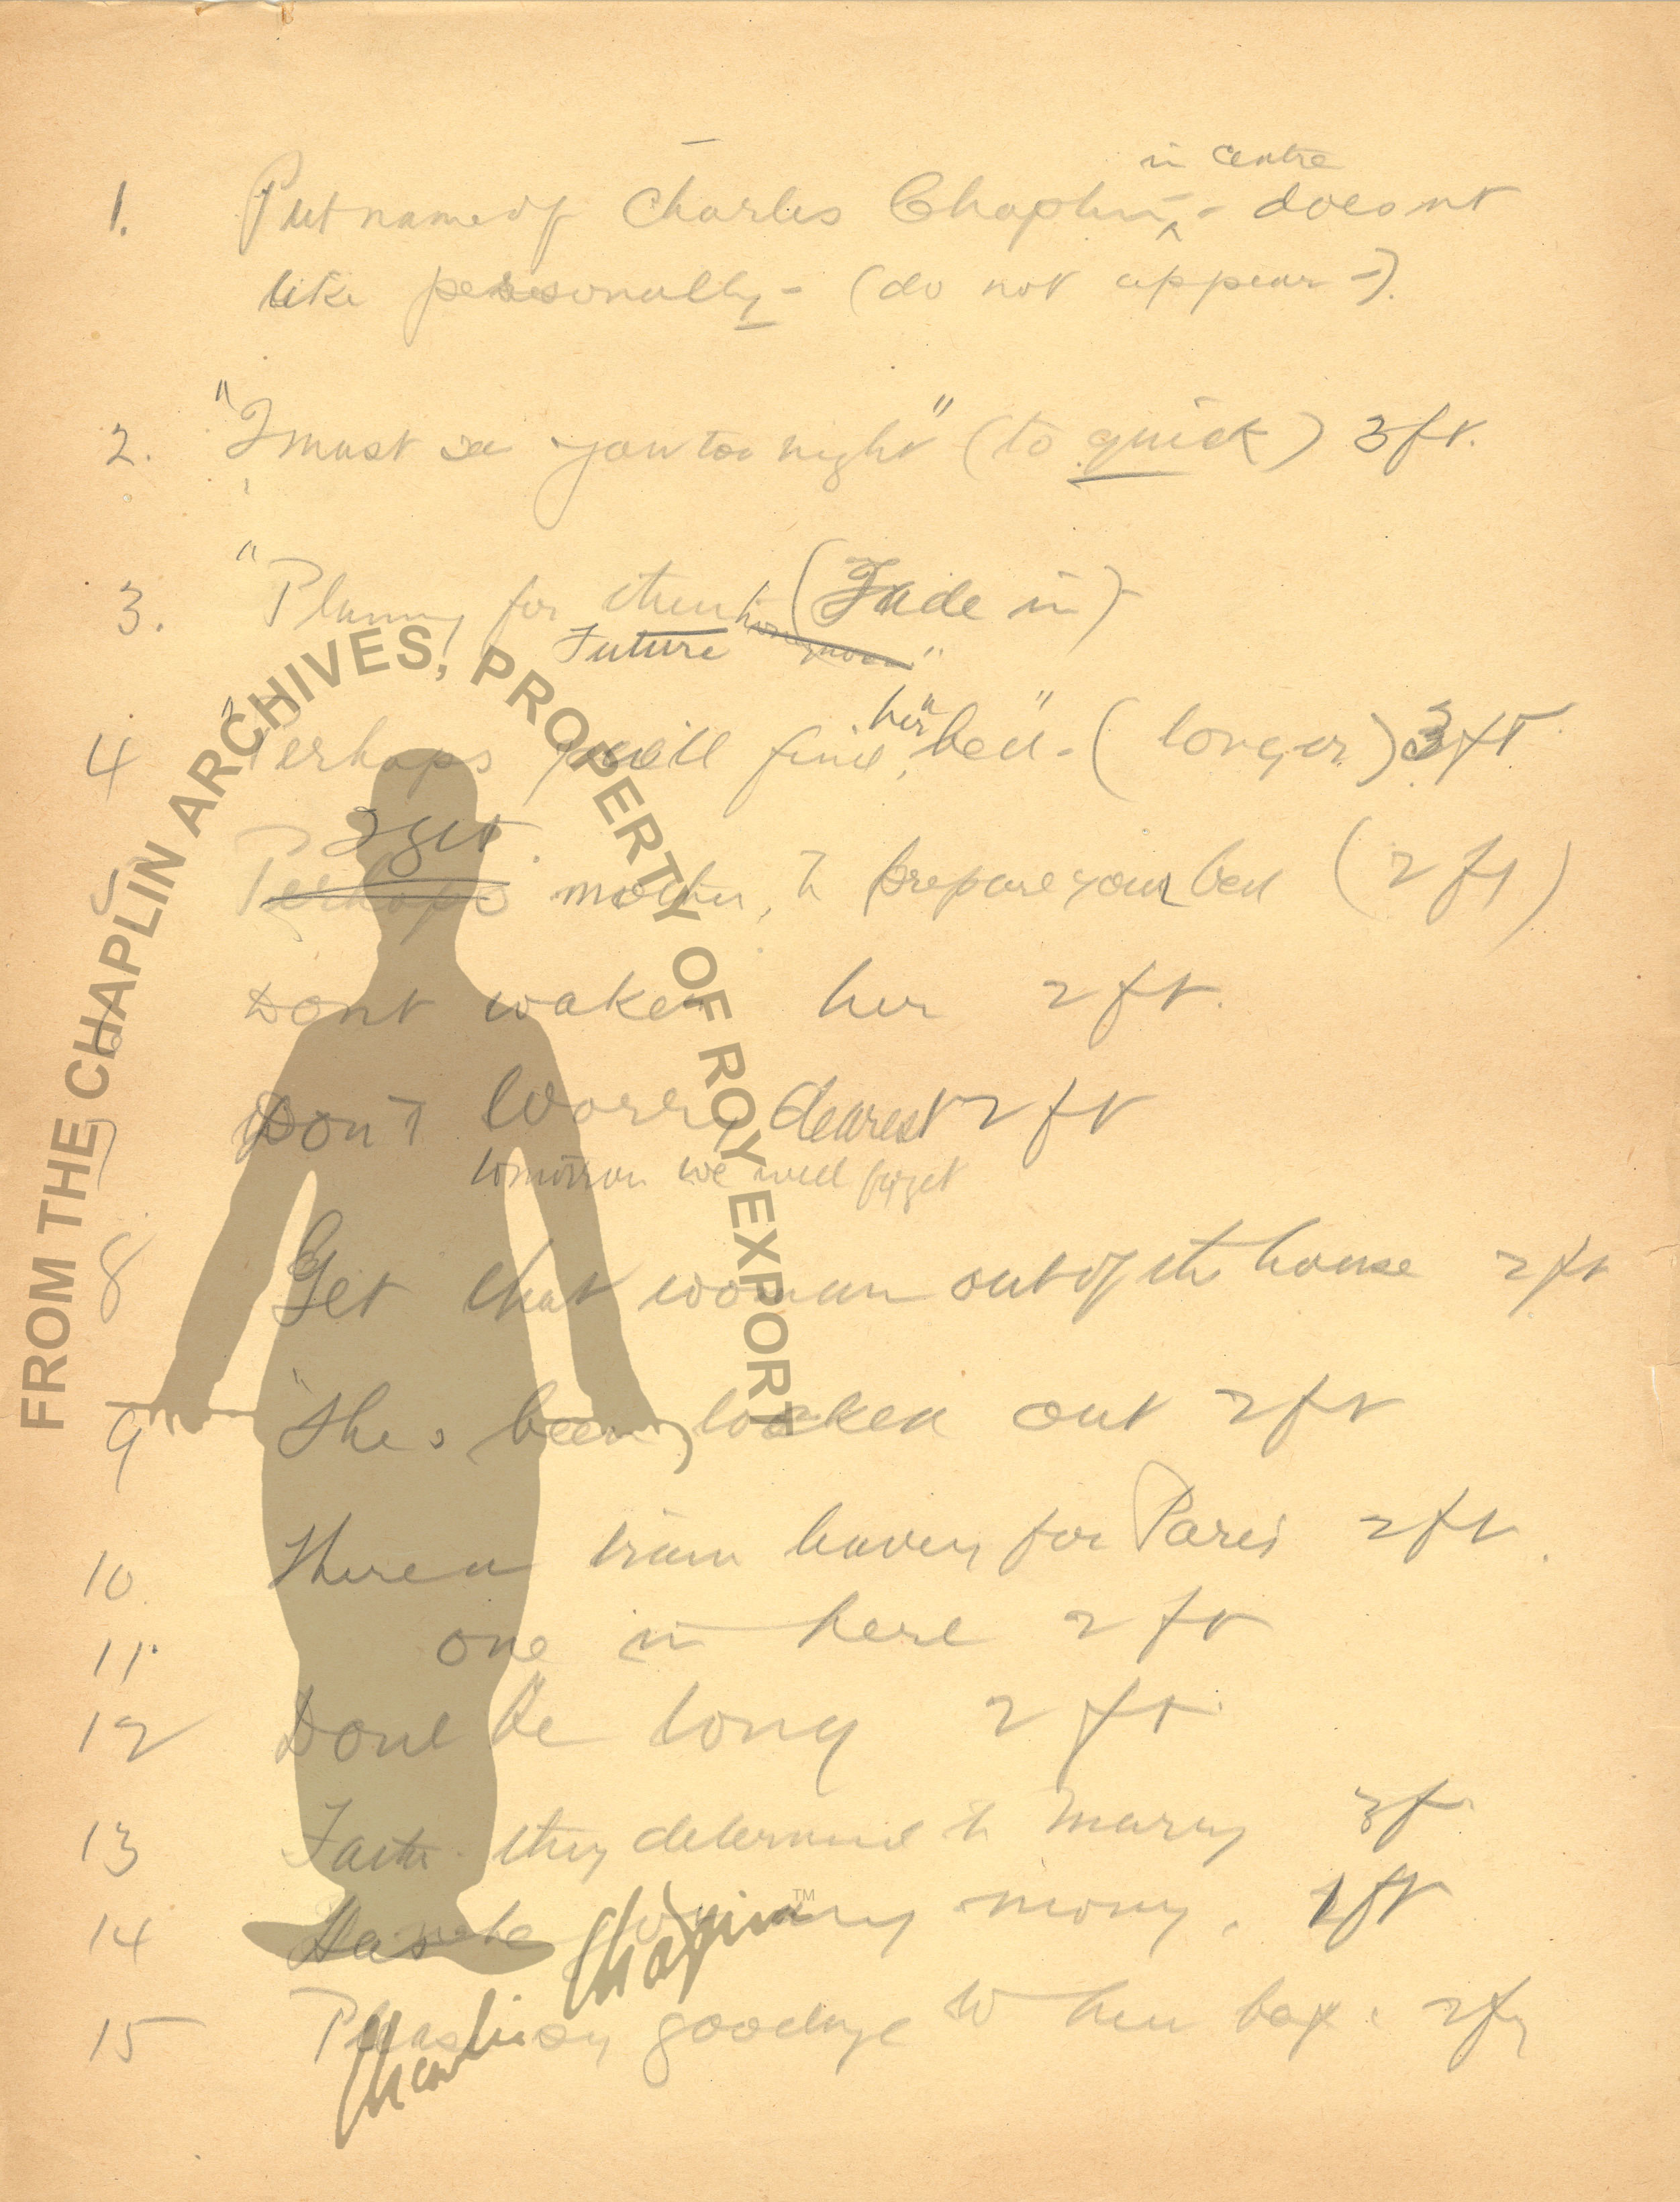 in centre
1. Put name of Charles Chaplin - doesnt
like personally - (do not appear -).
2. "I must see you too night" (to quick) 3 ft.
3. "Planning for their honeymoon (Fade in)
Future "
her
4 "Perhaps will find bed" - (longer) 3 ft
I get
5 Perhaps mother, to prepare your bed (2 ft)
6 Dont waken her 2 ft.
7 Don't Worry dearest 2 ft
tomorrow we will forget
8 Get that woman out of the house 2 ft
9 "Shes been locked out 2 ft
10. Theres a train leaving for Paris 2 ft.
11. one in here 2 ft
12 Dont be long 2 ft.
13 they determined to marry 3 f
14 Has he any mony. 2 ft
15 Please say goodbye to
FROM THE CHAPLIN ARCHIVES, PROPERTY OF ROY EXPORT
Charlie Chaplin™